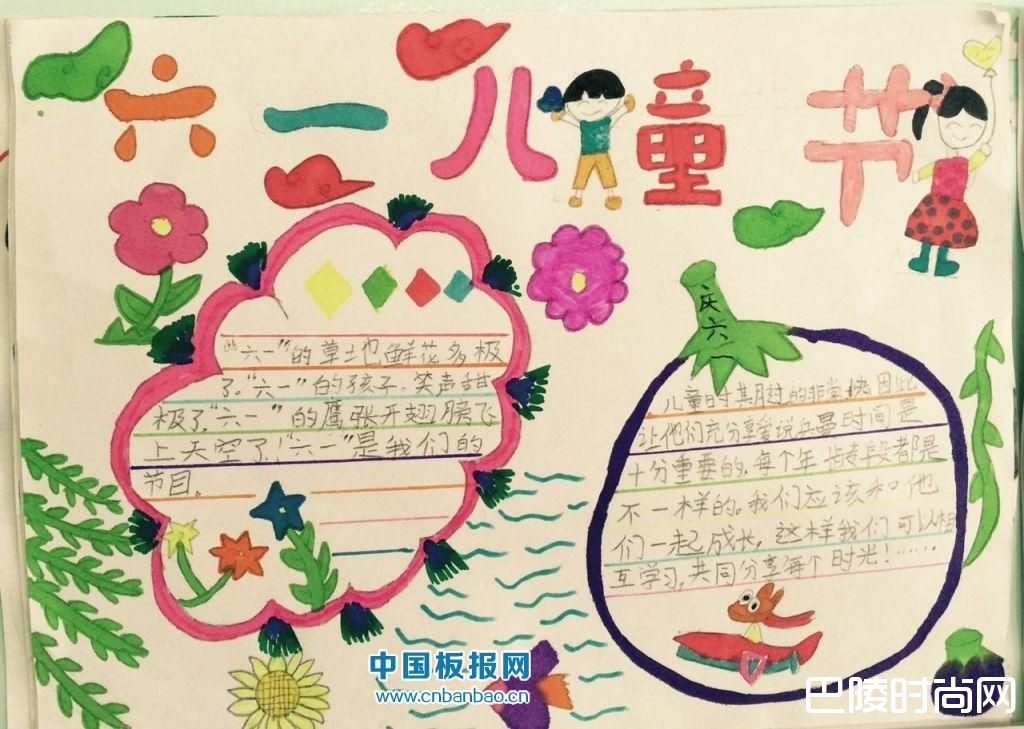 六一儿童节
"六一"的草地鲜花多极
了。"六一"的孩子,笑声甜
极了"六一"的鹰张开翅膀飞
上天空了!"六一"是我们的
节目。
庆六一
儿童时其月过的非常快因此
让他们充分享爱说时间是
十分重要的,每个年段都是
不一样的。我们应该和他
们一起成长,这样我们可以相
互学习,共同分享每个时光!……
中国板报网
www.cnbanbao.cn
巴陵时尚网